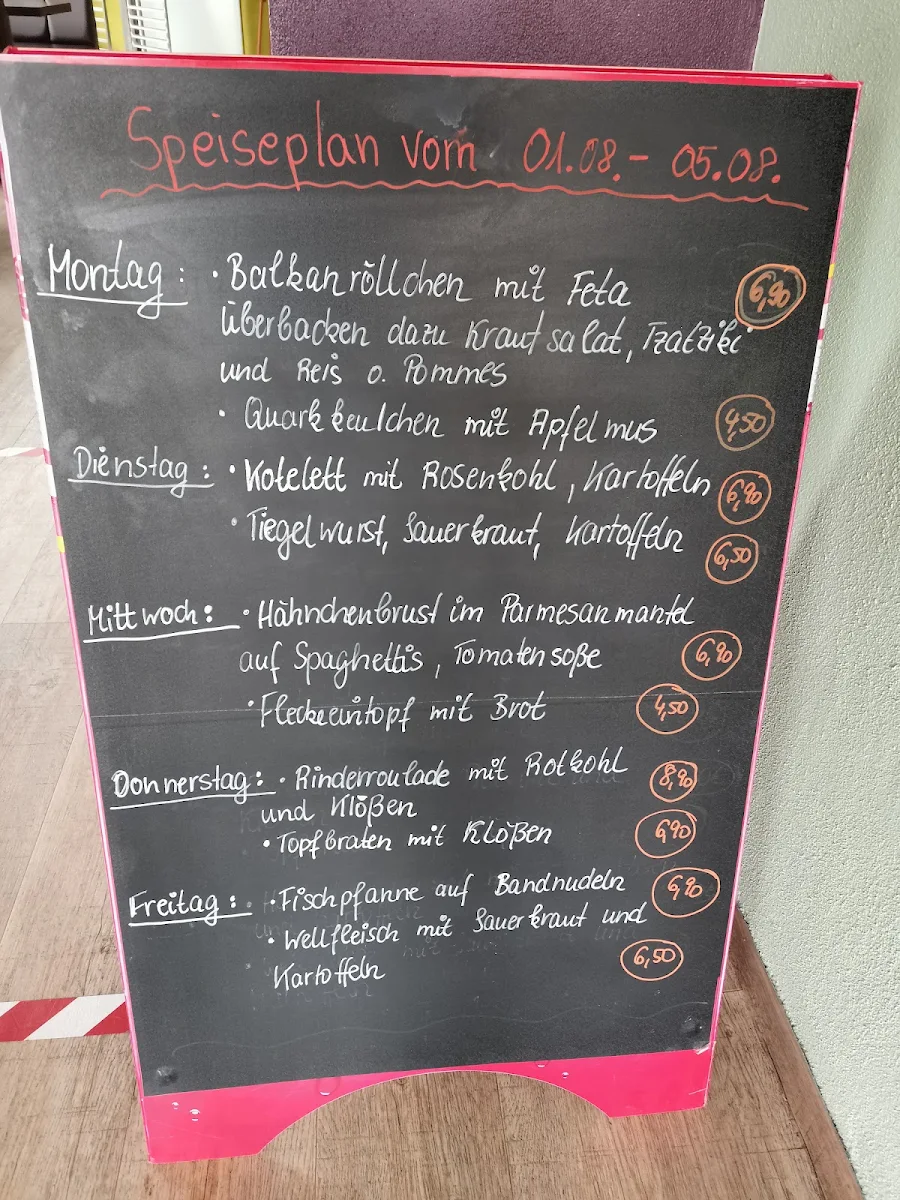 Speiseplan vom 01.08.- 05.08.
Montag: · Balkanröllchen mit Feta 6,90
überbacken dazu Krautsalat, Tzatziki
und Reis o. Pommes
· Quarkkeulchen mit Apfelmus 4,50
Dienstag: · Kotelett mit Rosenkohl, Kartoffeln 6,90
· Tiegelwurst, Sauerkraut, Kartoffeln 6,50
Mittwoch: · Hähnchenbrust im Parmesanmantel
auf Spaghettis, Tomatensoße 6,90
· Fleckeeintopf mit Brot 4,50
Donnerstag: · Rinderroulade mit Rotkohl 8,90
und Klößen
· Topfbraten mit Klößen 6,90
Freitag: · Fischpfanne auf Bandnudeln 6,90
· Wellfleisch mit Sauerkraut und
Kartoffeln 6,50